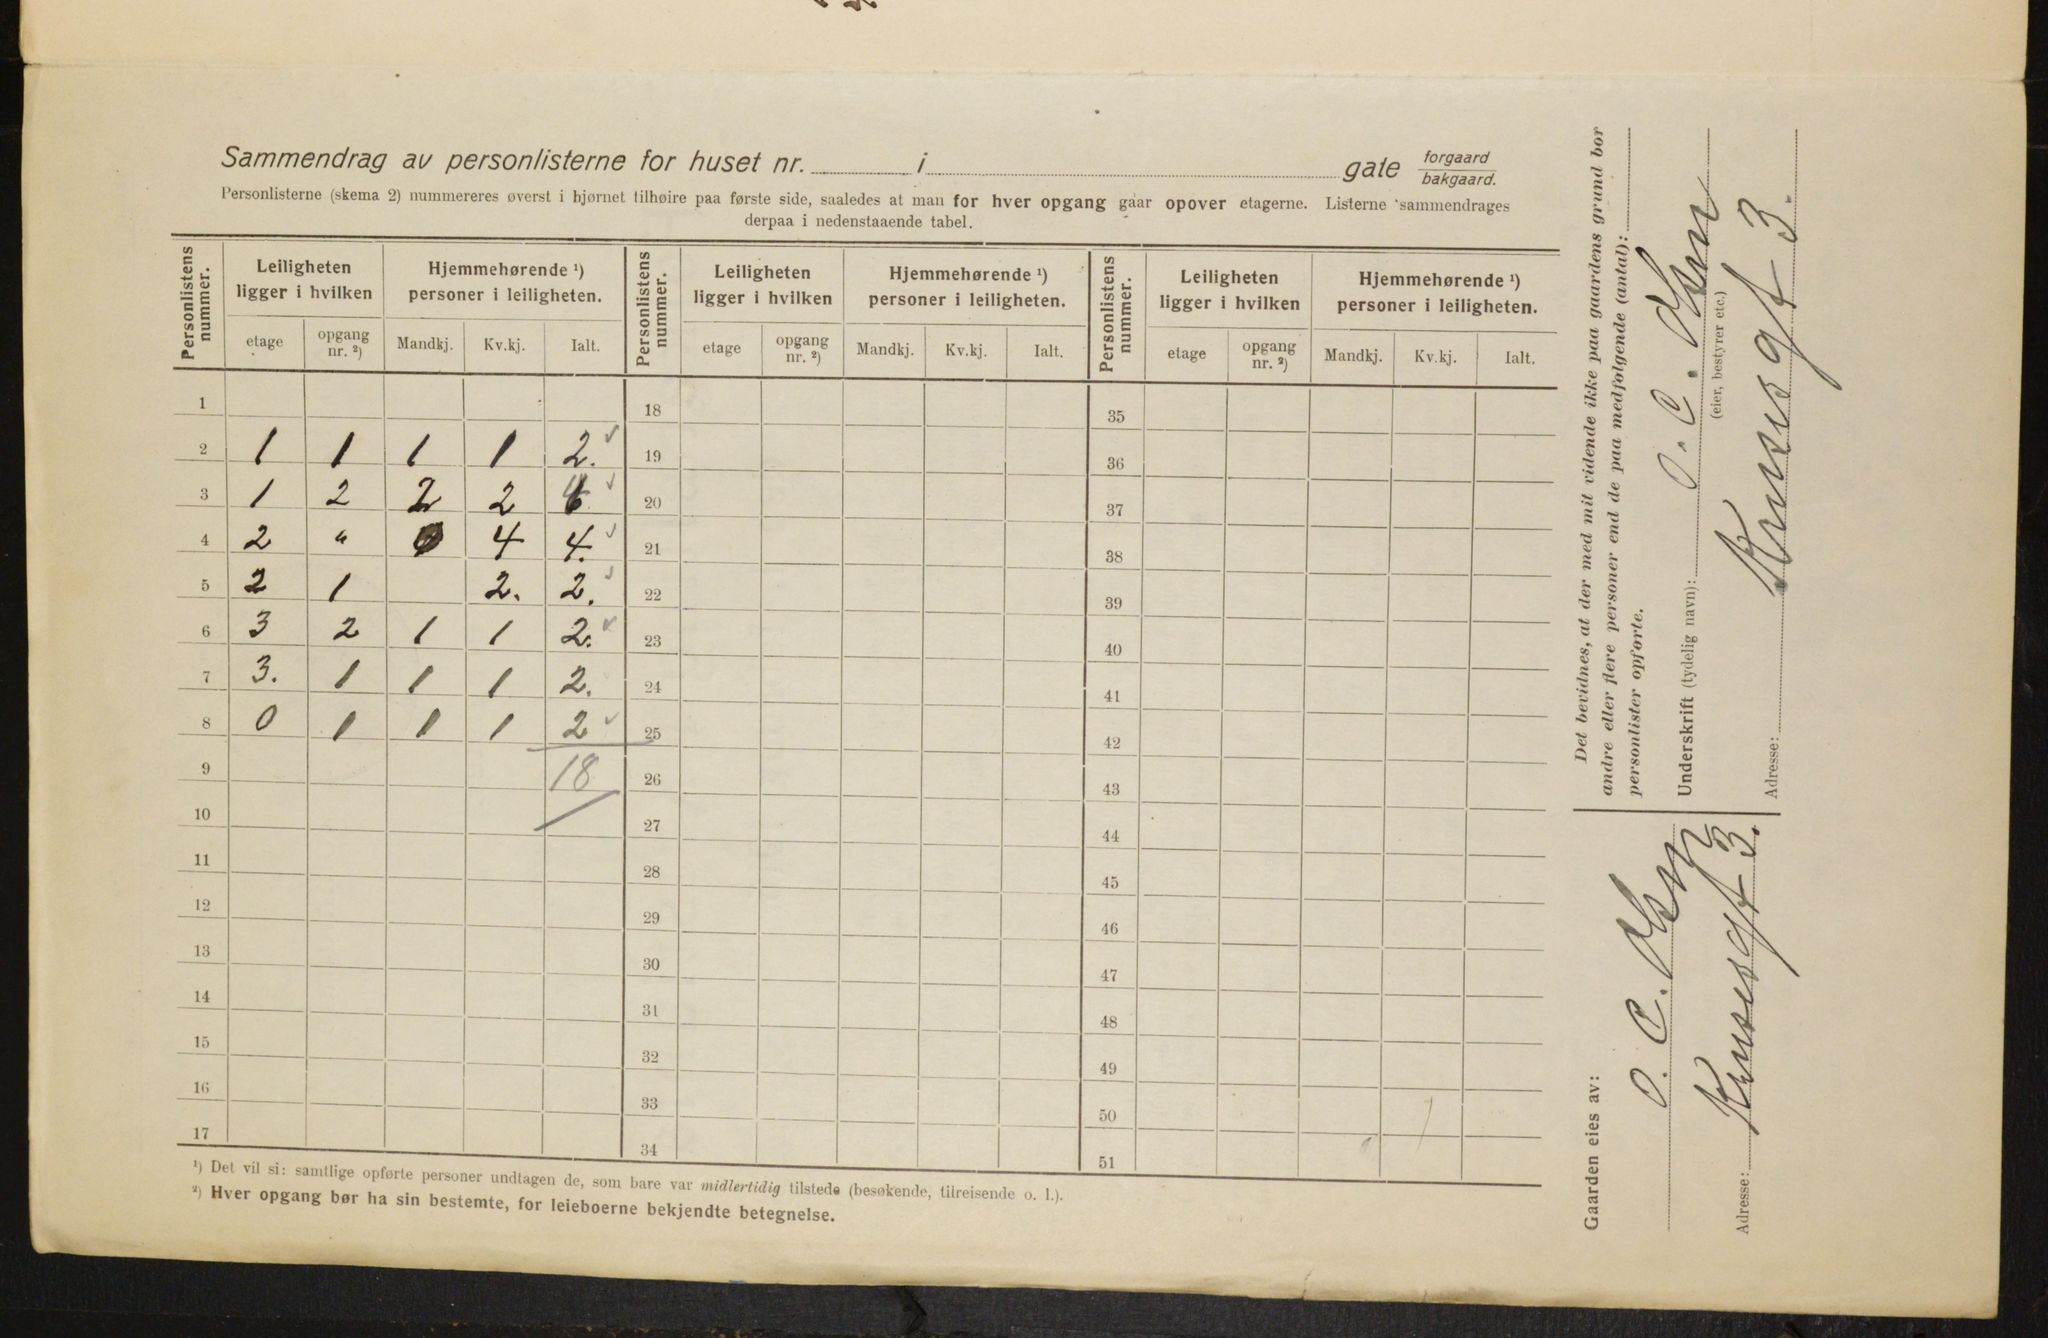 Sammendrag av personlisterne for huset nr. i gate forgaard bakgaard.
Personlisterne (skema 2) nummereres øverst i hjørnet tilhøire paa første side, saaledes at man for hver opgang gaar opover etagerne. Listerne sammendrages
derpaa i nedenstaaende tabel.
Personlistens nummer. Leiligheten ligger i hvilken Hjemmehørende ¹) personer i leiligheten. Personlistens nummer. Leiligheten ligger i hvilken Hjemmehørende ¹) personer i leiligheten. Personlistens nummer. Leiligheten ligger i hvilken Hjemmehørende ¹) personer i leiligheten.
etage opgang nr. ²) Mandkj. Kv.kj. Ialt. etage opgang nr. ²) Mandkj. Kv.kj. Ialt. etage opgang nr. ²) Mandkj. Kv.kj. Ialt.
1 18 35
2 1 1 1 1 2. 19 36
3 1 2 2 2 4 20 37
4 2 " 4 4. 21 38
5 2 1 2. 2. 22 39
6 3 2 1 1 2. 23 40
7 3. 1 1 1 2. 24 41
8 0 1 1 1 2 25 42
9 18 26 43
10 27 44
11 28 45
12 29 46
13 30 47
14 31 48
15 32 49
16 33 50
17 34 51
¹) Det vil si: samtlige opførte personer undtagen de, som bare var midlertidig tilstede (besøkende, tilreisende o. l.).
²) Hver opgang bør ha sin bestemte, for leieboerne bekjendte betegnelse.
Det bevidnes, at der med mit vidende ikke paa gaardens grund bor
andre eller flere personer end de paa medfølgende (antal):
personlister opførte.
Underskrift (tydelig navn): O. C. Olsen
(eier, bestyrer etc.)
Adresse: Krusesgt 3.
Gaarden eies av:
O. C. Olsen
Adresse: Krusesgt 3.